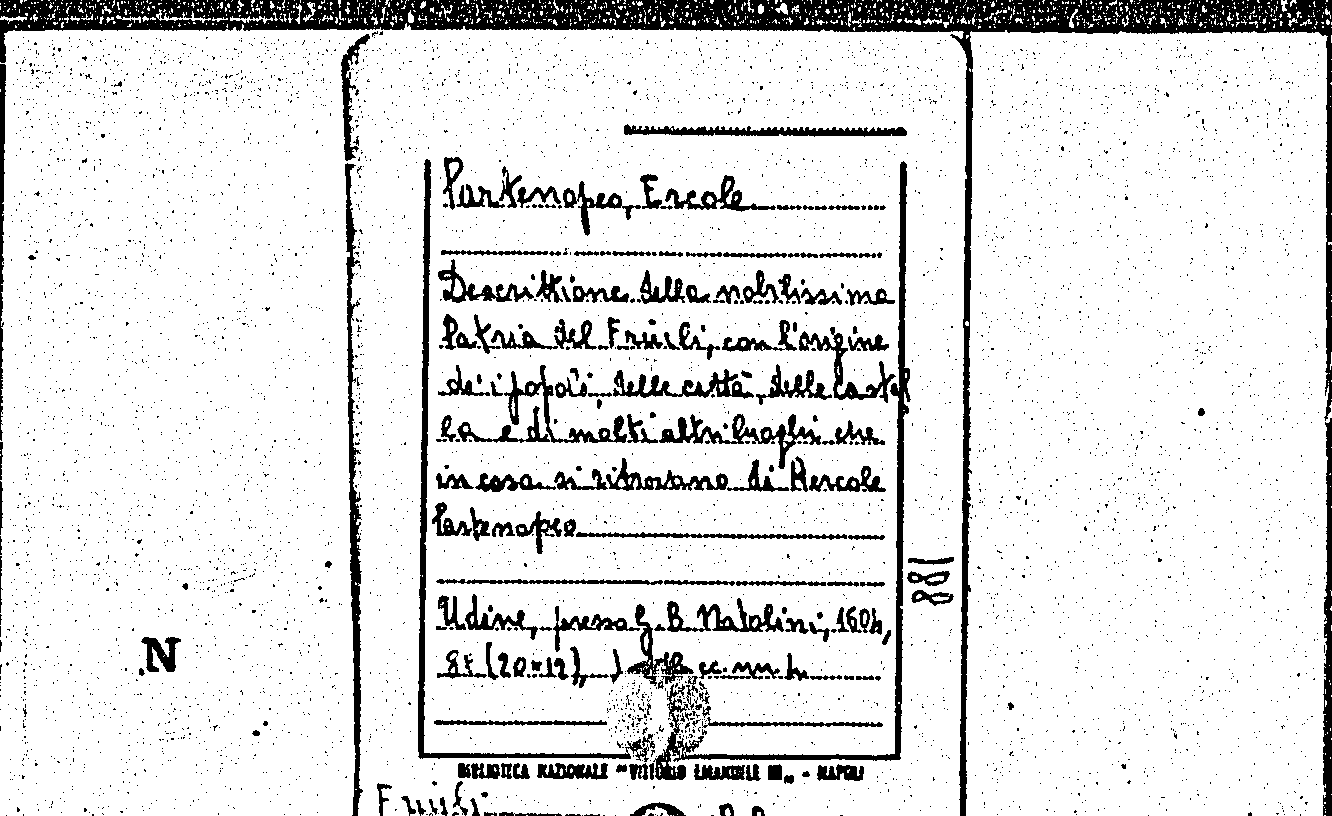 Partenopeo, Ercole
Descrittione della nobilissima
Patria del Friuli, con l'origine
de' i popoli, delle città, delle castel
la e di molti altri luoghi che
in essa si ritrovano di Hercole
Partenopeo
188
Udine, presso G. B. Natolini, 1604,
8° (20×12), cc. nn. 4
N
BIBLIOTECA NAZIONALE "VITTORIO EMANUELE III" - NAPOLI
Friuli